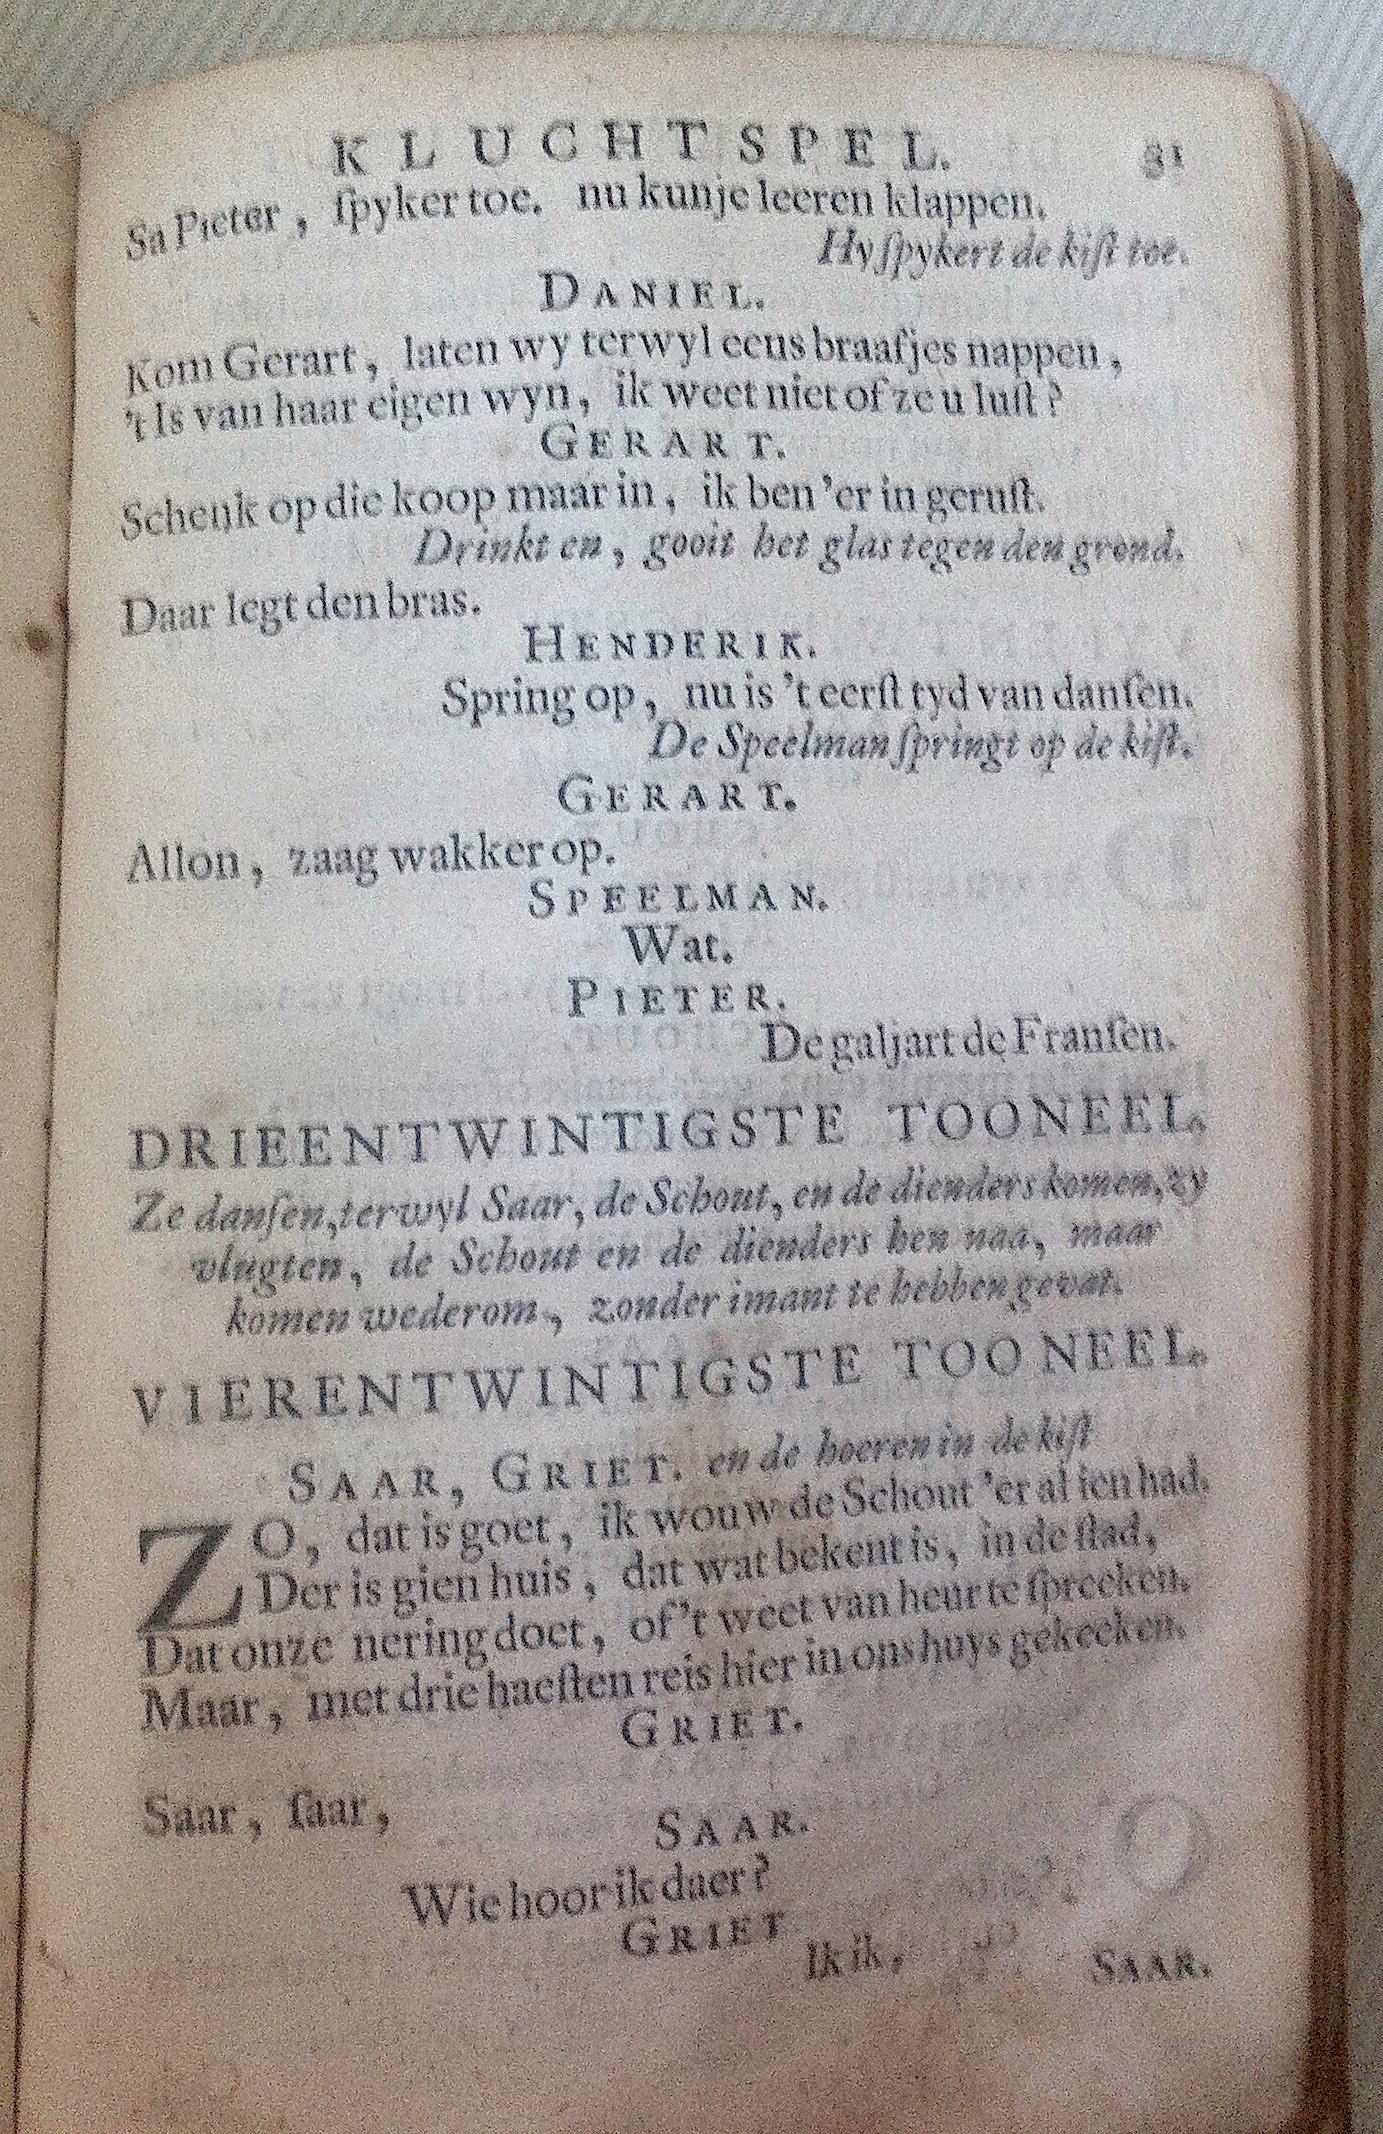 KLUCHTSPEL. 31
Sa Pieter, ſpyker toe. nu kunje leeren klappen.
Hy ſpykert de kiſt toe.
DANIEL.
Kom Gerart, laten wy terwyl eens braafjes nappen,
't Is van haar eigen wyn, ik weet niet of ze u luſt?
GERART.
Schenk op die koop maar in, ik ben 'er in geruſt.
Drinkt en, gooit het glas tegen den grond.
Daar legt den bras.
HENDERIK.
Spring op, nu is 't eerſt tyd van danſen.
De Speelman ſpringt op de kiſt.
GERART.
Allon, zaag wakker op.
SPEELMAN.
Wat.
PIETER.
De galjart de Franſen.
DRIEENTWINTIGSTE TOONEEL.
Ze danſen, terwyl Saar, de Schout, en de dienders komen, zy
vlugten, de Schout en de dienders hen naa, maar
komen wederom, zonder imant te hebben gevat.
VIERENTWINTIGSTE TOONEEL.
SAAR, GRIET. en de hoeren in de kiſt
ZO, dat is goet, ik wouw de Schout 'er al ien had.
Der is gien huis, dat wat bekent is, in de ſtad,
Dat onze nering doet, of 't weet van heur te ſpreeken.
Maar, met drie haeſten reis hier in ons huys gekeeken.
GRIET.
Saar, ſaar,
SAAR.
Wie hoor ik daer?
GRIET
Ik ik.
SAAR.